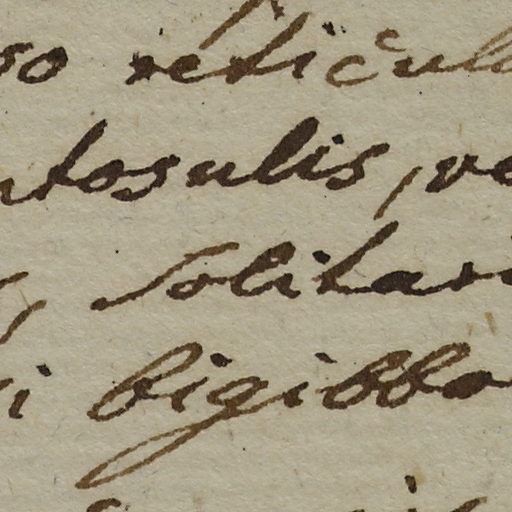 so reticul
ntosulis, ve
solitari
i bigibbo